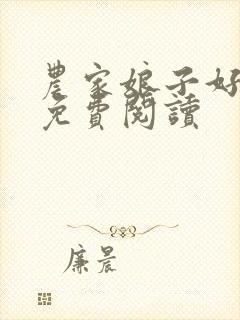 農家娘子好
免費閱讀
廉晨